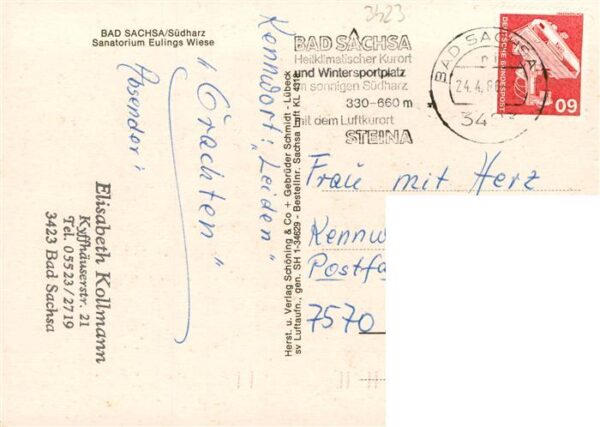 BAD SACHSA/Südharz
Sanatorium Eulings Wiese
3423
Kennwort: „Leiden"
„Grachten"
Absender:
Elisabeth Kollmann
Kyffhäuserstr. 21
Tel. 05523/2719
3423 Bad Sachsa
Herst. u. Verlag Schöning & Co + Gebrüder Schmidt - Lübeck
sv Luftaufn., gen. SH 1-34629 - Bestellnr. Sachsa Luft KL 4416
BAD SACHSA
Heilklimatischer Kurort
und Wintersportplatz
im sonnigen Südharz
330-660 m
mit dem Luftkurort
STEINA
BAD SACHSA
24.4.8
342
DEUTSCHE BUNDESPOST
60
Frau mit Herz
Kennw
Postfa
7570